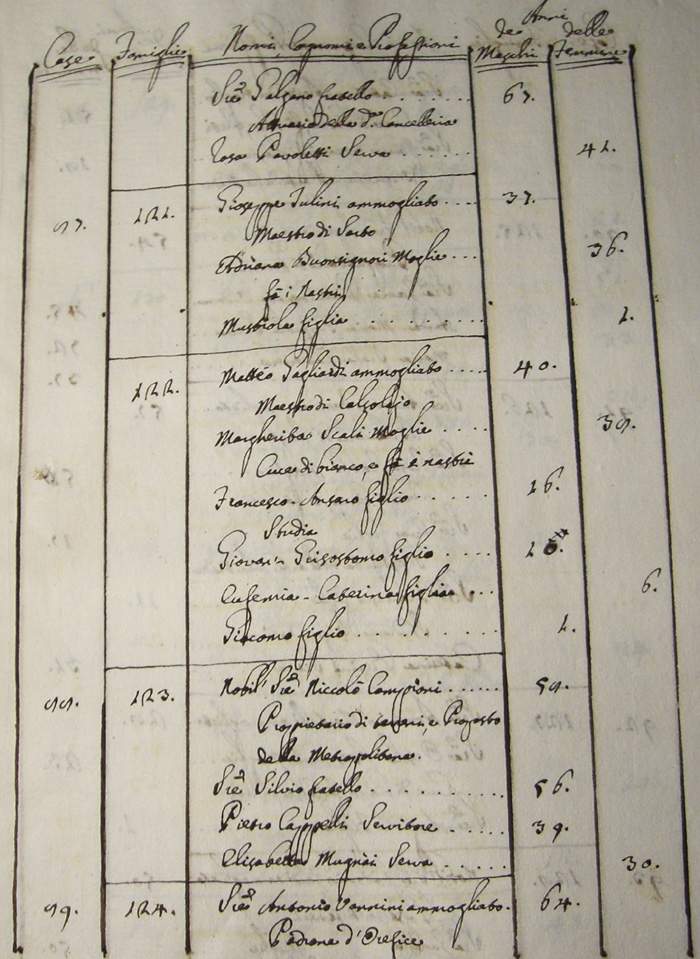 Anni
Case Famiglie Nomi, Cognomi, e Professioni de Maschi delle Femmine
Sig.e Galgano fratello 67.
Attuario della d.a Cancelleria
Rosa Pavoletti Serva 41.
97. 121. Giuseppe Tulini ammogliato 37.
Maestro di Sarto
Adriana Buonsignori Moglie 36.
fà i nastri
Mustiola figlia 1.
122. Matteo Gagliardi ammogliato 40.
Maestro di Calzolajo
Margherita Scali Moglie 39.
Cuce di bianco, e fà i nastri
Francesco Ansano figlio 16.
Studia
Giovan Grisostomo figlio
Eufemia Caterina figlia 6.
Giacomo figlio 1.
123. Nobil Sig.e Niccolò Campioni 59.
Proprietario di terreni, e Proposto
della Metropolitana.
Sig.e Silvio fratello 56.
Pietro Cappelli Servitore 39.
Elisabetta Mugnai Serva 30.
99. 124. Sig.e Antonio Vannini ammogliato. 64.
Padrone d'Orefice